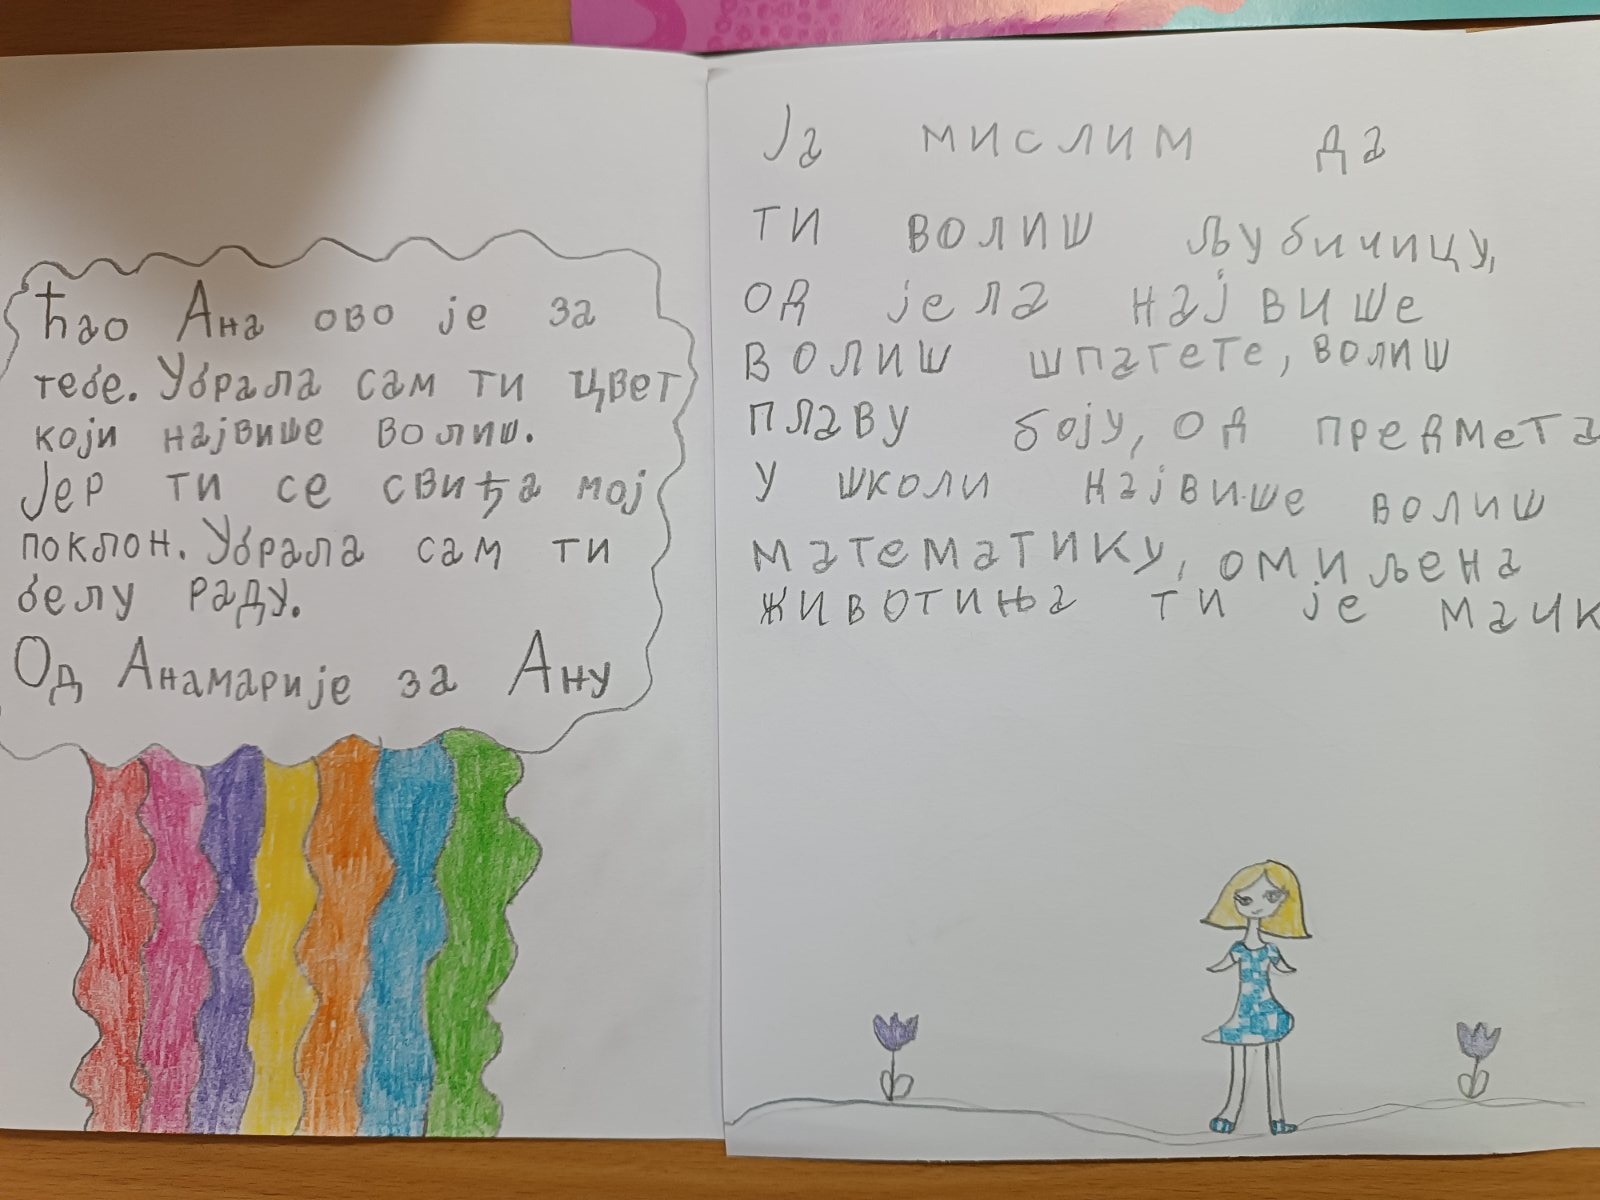 Ћао Ана ово је за
тебе. Убрала сам ти цвет
који највише волиш.
Јер ти се свиђа мој
поклон. Убрала сам ти
белу раду.
Од Анамарије за Ану
Ја мислим да
ти волиш љубичицу,
од јела највише
волиш шпагете, волиш
плаву боју, од предмета
у школи највише волиш
математику, омиљена
животиња ти је мачк